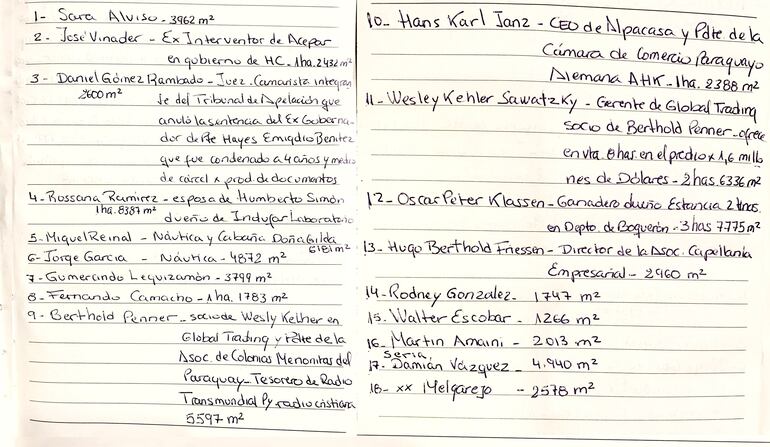 1- Sara Alviso - 3962 m²
2 - José Vinader - Ex Interventor de Acepar
en gobierno de HC - 1ha. 2432 m²
3 - Daniel Gómez Rambado - Juez Camarista integran
2600 m²
te del Tribunal de Apelación que
anuló la sentencia del Ex Goberna-
dor de Pte Hayes Emigdio Benitez
que fue condenado a 4 años y medio
de cárcel x prod. de documentos
4 - Rossana Ramirez - esposa de Humberto Simón
1ha. 8387 m²
dueño de Indufar Laboratorio
5 - Miquel Reinal - Náutica y Cabaña Doña Gilda
6181 m²
6 - Jorge Garcia - Náutica - 4872 m²
7 - Gumercindo Lequizamón - 3799 m²
8 - Fernando Camacho - 1ha. 1783 m²
9 - Berthold Penner - socio de Wesly Kelher en
Global Trading y Pdte de la
Asoc. de Colonias Menonitas del
Paraguay - Tesorero de Radio
Transmundial Py radio cristiana
5597 m²
10- Hans Karl Janz - CEO de Alpacasa y Pdte de la
Cámara de Comercio Paraguayo
Alemana AHK - 1ha. 2388 m²
11- Wesley Kehler Sawatzky - Gerente de Global Trading
socio de Berthold Penner - ofrece
en vta. 8 has. en el predio x 1,6 millo
nes de Dólares - 2 has. 6336 m²
12- Oscar Peter Klassen - Ganadero dueño Estancia 2 Unos
en Depto. de Boquerón - 3 has 7775 m²
13- Hugo Berthold Friessen - Director de la Asoc. Capellanía
Empresarial - 2960 m²
14- Rodney Gonzalez - 1747 m²
15- Walter Escobar - 1266 m²
16- Martin Amaini - 2013 m²
seria,
17- Damián Vázquez - 4.940 m²
18- xx Melgarejo - 2578 m²